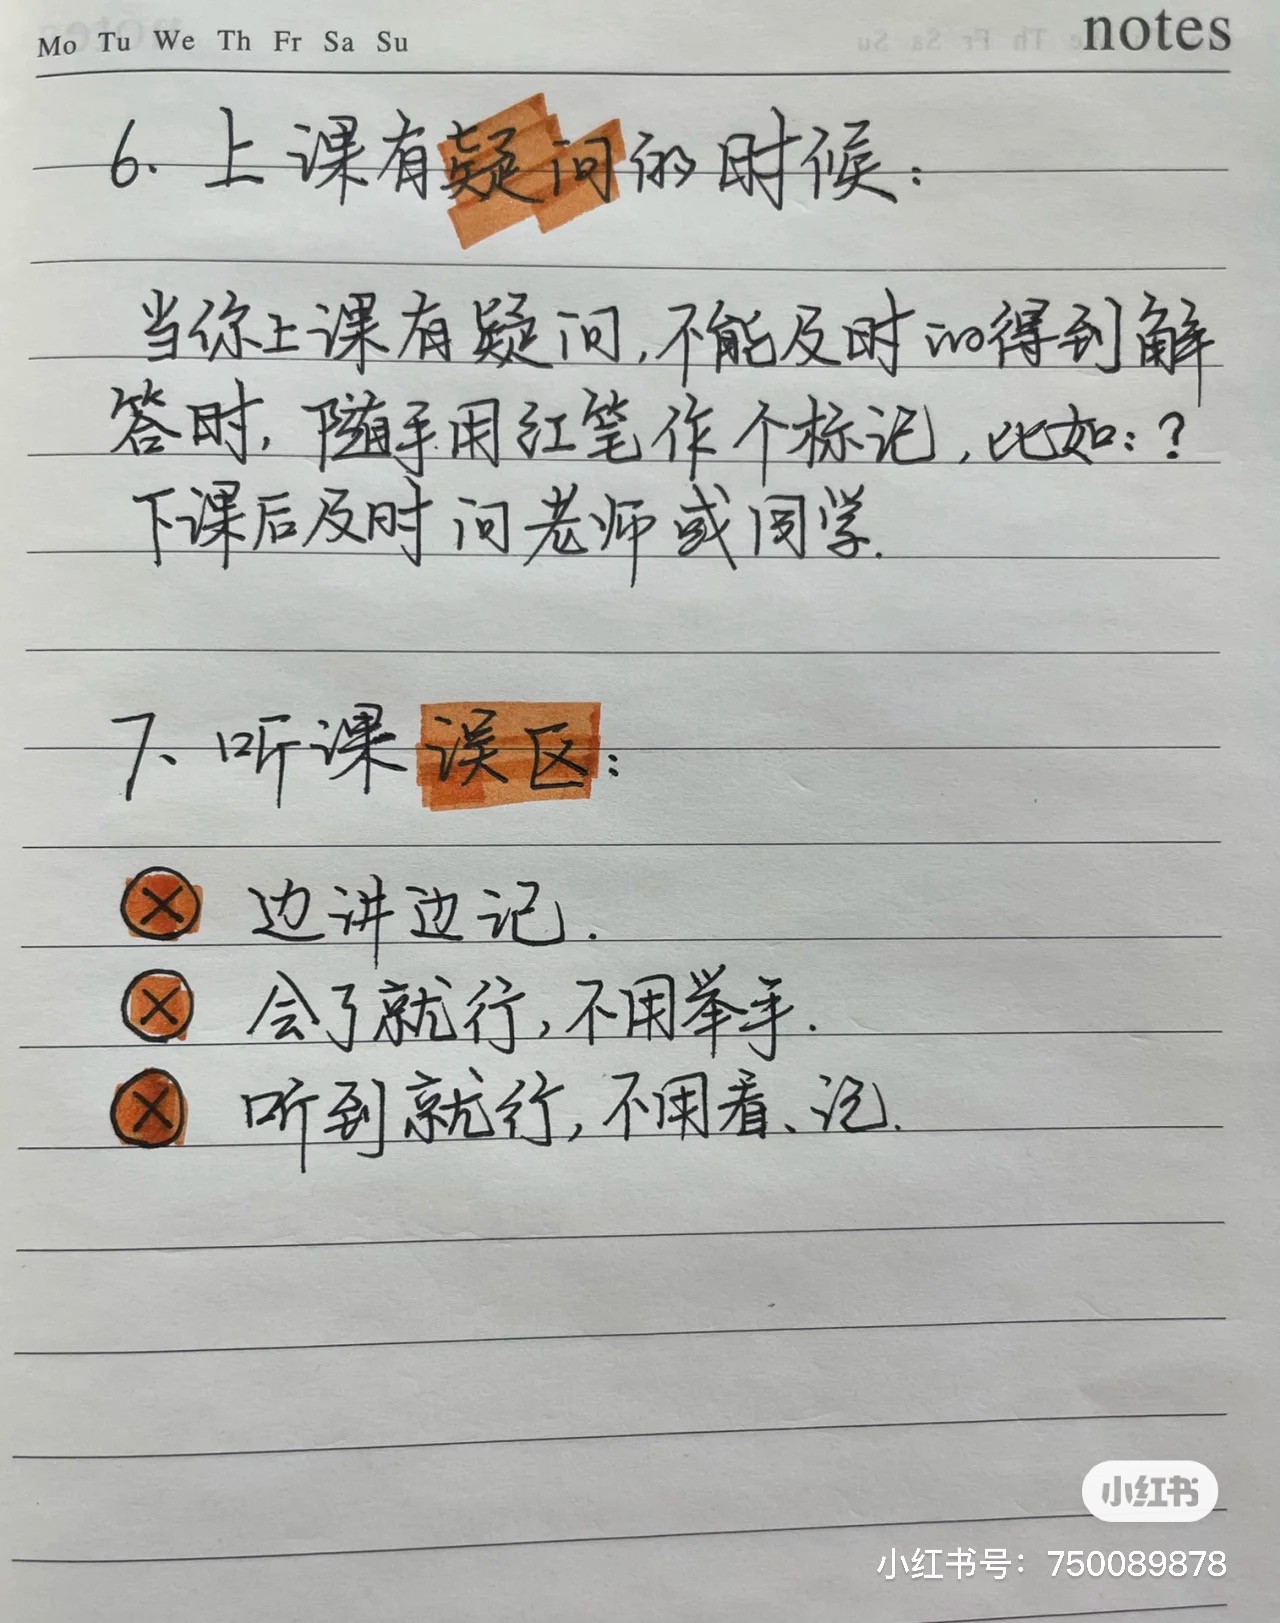 Mo Tu We Th Fr Sa Su notes
6. 上课有疑问的时候：
当你上课有疑问，不能及时的得到解
答时，随手用红笔作个标记，比如：？
下课后及时问老师或同学.
7、听课误区：
× 边讲边记.
× 会了就行，不用举手.
× 听到就行，不用看、记.
小红书
小红书号：750089878